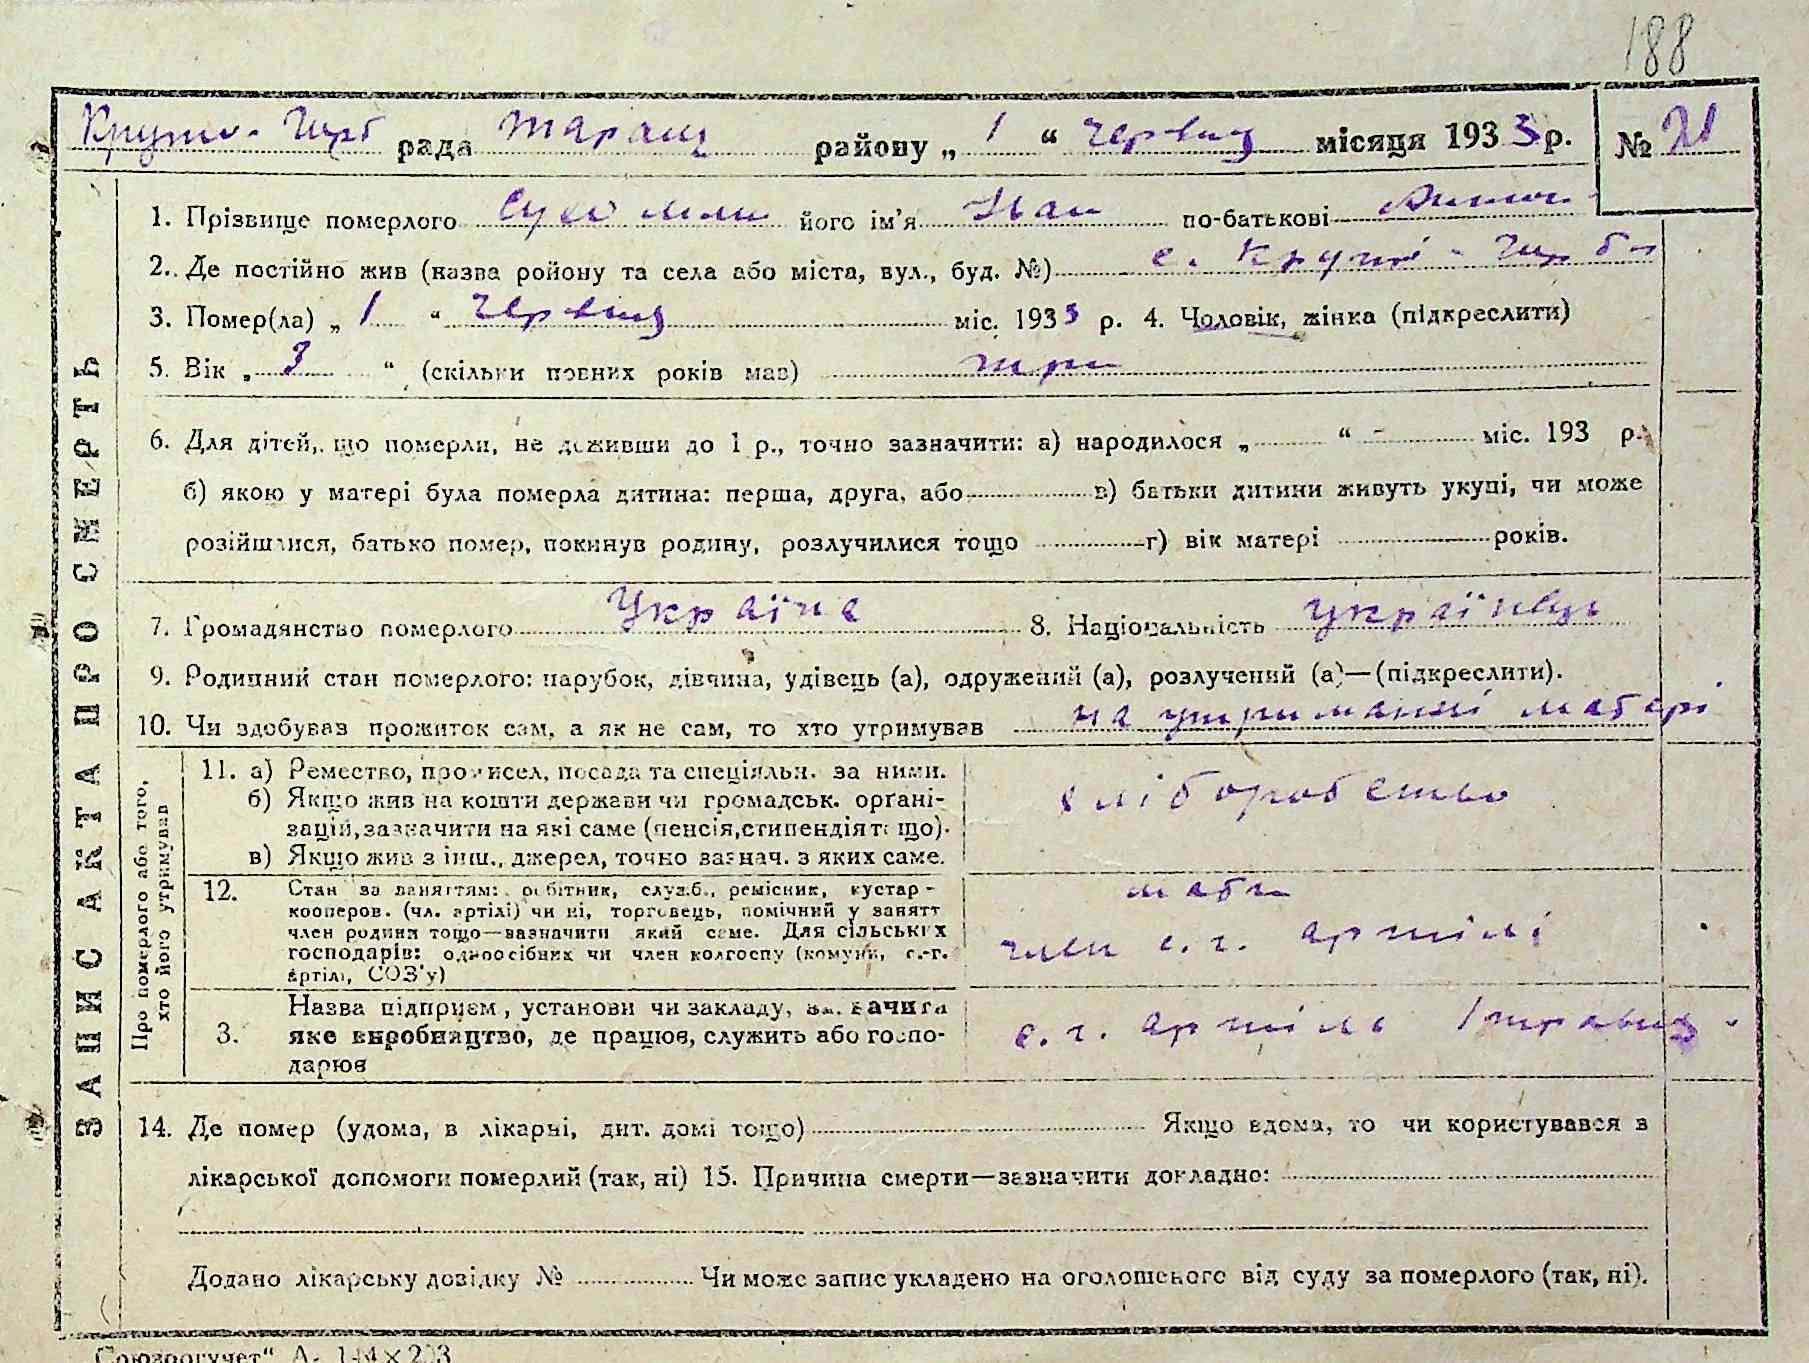 188
Круто-Горб рада Таращ району „ 1 “ червня місяця 1933 р. № 21
1. Прізвище померлого його ім'я Іван по-батькові
2. Де постійно жив (назва ройону та села або міста, вул., буд. №) с. Круті-Горби
3. Помер(ла) „ 1 “ червня міс. 1933 р. 4. Чоловік, жінка (підкреслити)
5. Вік „ 3 “ (скільки повних років мав) три
6. Для дітей, що померли, не доживши до 1 р., точно зазначити: а) народилося „ “ - міс. 193 р.
б) якою у матері була померла дитина: перша, друга, або в) батьки дитини живуть укупі, чи може
розійшлися, батько помер, покинув родину, розлучилися тощо г) вік матері років.
7. Громадянство померлого Україна 8. Національність українець
9. Родинний стан померлого: парубок, дівчина, удівець (а), одружений (а), розлучений (а)—(підкреслити).
10. Чи здобував прожиток сам, а як не сам, то хто утримував на утриманні матері
ЗАПИС АКТА ПРО СМЕРТЬ
Про померлого або того, хто його утримував
11. а) Ремество, промисел, посада та спеціяльн. за ними.
б) Якщо жив на кошти держави чи громадськ. органі-
зацій, зазначити на які саме (пенсія, стипендія тощо).
в) Якщо жив з інш., джерел, точно зазнач. з яких саме.
хліборобство
12. Стан за заняттям: робітник, служб., ремісник, кустар-
кооперов. (чл. артілі) чи ні, торговець, помічний у занятт
член родини тощо—зазначити який саме. Для сільських
господарів: одноосібник чи член колгоспу (комуни, с.-г.
артілі, СОЗ'у)
мати
член с. г. артілі
3. Назва підприєм, установи чи закладу, зазначити
яке виробництво, де працює, служить або госпо-
дарює
с. г. артіль 1 травня
14. Де помер (удома, в лікарні, дит. домі тощо) Якщо вдома, то чи користувався в
лікарської допомоги померлий (так, ні) 15. Причина смерти—зазначити докладно:
Додано лікарську довідку № Чи може запис укладено на оголошеного від суду за померлого (так, ні).
„Союзоргучет“ А-